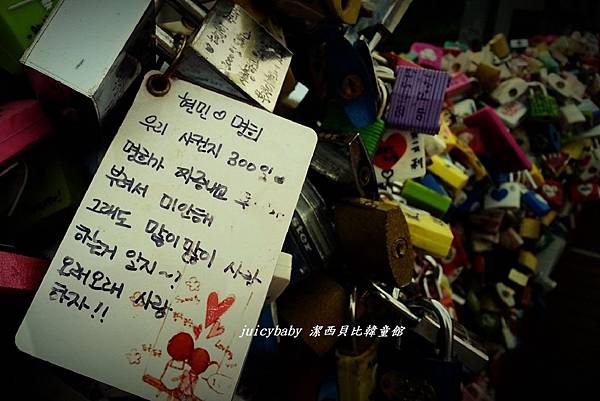 현민♡명희
우리 사귄지 300일
명희가 짜증내고
부려서 미안해
그래도 많이많이 사랑
하는거 알지~?
오래오래 사랑
하자!!
juicybaby 潔西貝比韓童館